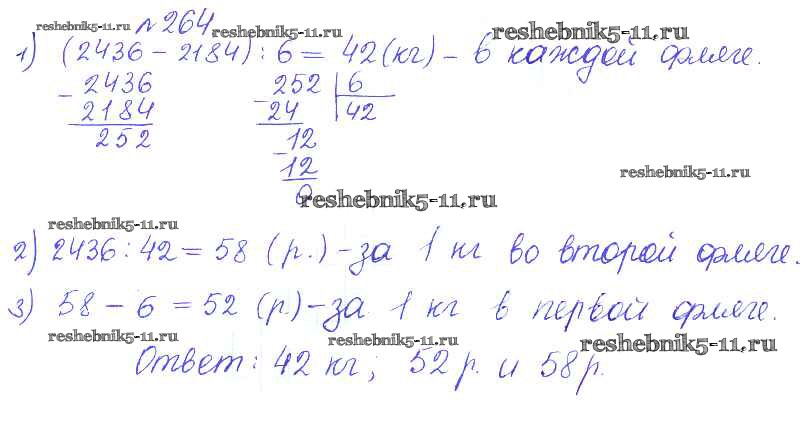 №264
reshebnik5-11.ru reshebnik5-11.ru reshebnik5-11.ru
1) (2436 - 2184) : 6 = 42 (кг) - в каждой фляге.
- 2436
2184
252
252 | 6
- 24 42
- 12
12
0
reshebnik5-11.ru
reshebnik5-11.ru
reshebnik5-11.ru
2) 2436 : 42 = 58 (р.) - за 1 кг во второй фляге.
3) 58 - 6 = 52 (р.) - за 1 кг в первой фляге.
reshebnik5-11.ru reshebnik5-11.ru reshebnik5-11.ru
Ответ: 42 кг; 52 р. и 58 р.